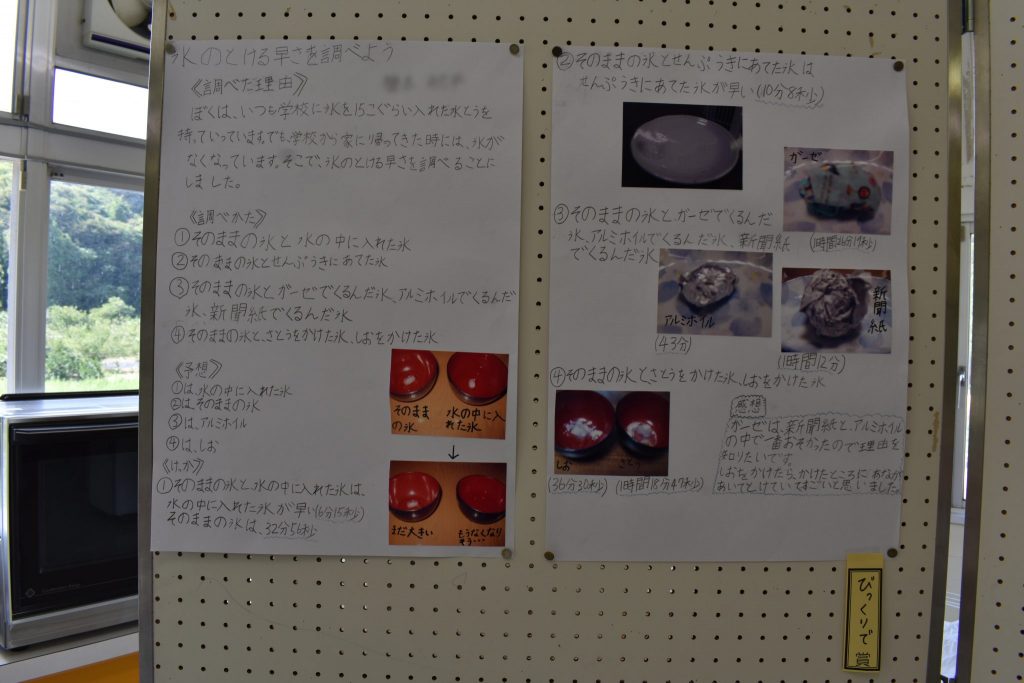 氷のとける早さを調べよう
《調べた理由》
ぼくは、いつも学校に氷を15こぐらい入れた水とうを
持っていっています。でも、学校から家に帰ってきた時には、氷が
なくなっています。そこで、氷のとける早さを調べることに
しました。
《調べかた》
①そのままの氷と水の中に入れた氷
②そのままの氷とせんぷうきにあてた氷
③そのままの氷と、ガーゼでくるんだ氷、アルミホイルでくるんだ
氷、新聞紙でくるんだ氷
④そのままの氷と、さとうをかけた氷、しおをかけた氷
《予想》
①は、水の中に入れた氷
②は、そのままの氷
③は、アルミホイル
④は、しお
《けっか》
①そのままの氷と、水の中に入れた氷は、
水の中に入れた氷が早い(6分15秒)
そのままの氷は、32分56秒
そのまま
の氷
水の中に入
れた氷
↓
まだ大きい
もうなくなり
そう…
②そのままの氷とせんぷうきにあてた氷は
せんぷうきにあてた氷が早い(10分8秒)
ガーゼ
(1時間26分17秒)
③そのままの氷と、ガーゼでくるんだ
氷、アルミホイルでくるんだ氷、新聞紙
でくるんだ氷
アルミホイル
(43分)
新聞紙
(1時間12分)
④そのままの氷とさとうをかけた氷、しおをかけた氷
しお
さとう
(36分30秒)
(1時間18分47秒)
感想
ガーゼは、新聞紙と、アルミホイル
の中で一番おそかったので理由を
知りたいです。
しおをかけたら、かけたところにあなが
あいてとけていてすごいと思いました。
びっくりで賞